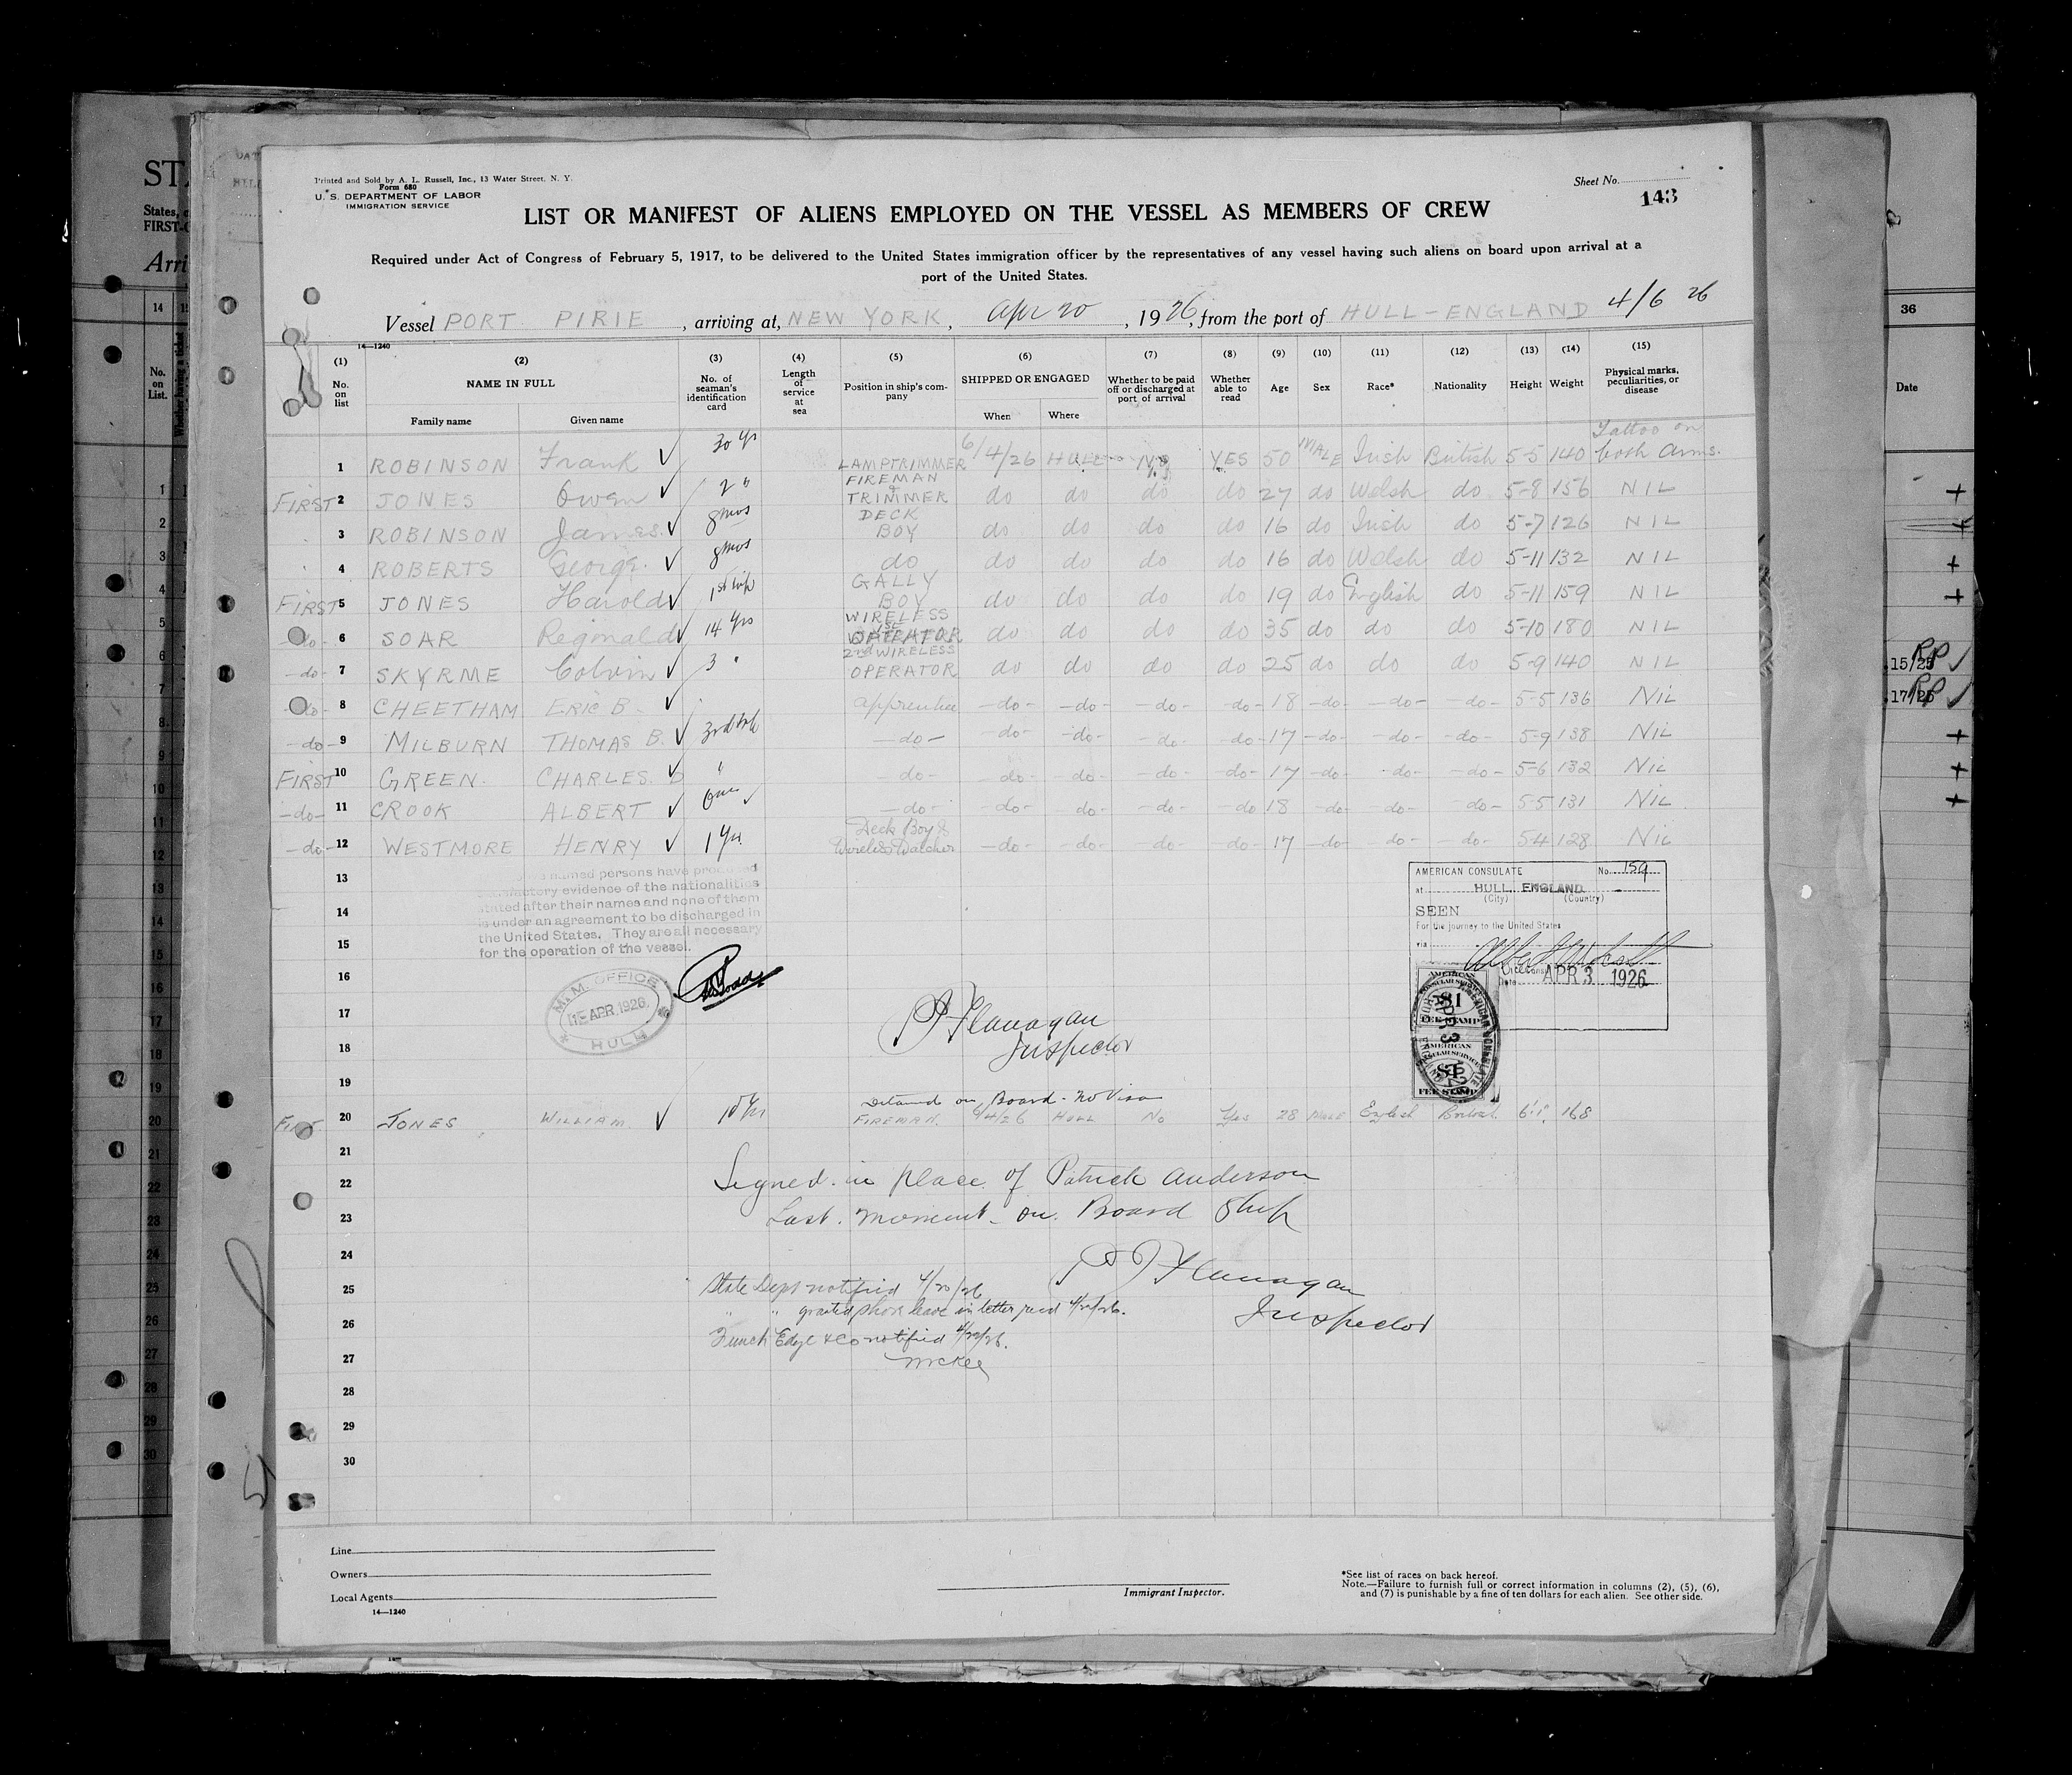 Printed and Sold by A. L. Russell, Inc., 13 Water Street, N. Y.
Form 680
U. S. DEPARTMENT OF LABOR
IMMIGRATION SERVICE
Sheet No.
143
LIST OR MANIFEST OF ALIENS EMPLOYED ON THE VESSEL AS MEMBERS OF CREW
Required under Act of Congress of February 5, 1917, to be delivered to the United States immigration officer by the representatives of any vessel having such aliens on board upon arrival at a
port of the United States.
Vessel PORT PIRIE, arriving at, NEW YORK, Apr 20, 1926, from the port of HULL-ENGLAND 4/6 26
14—1240
(1) (2) (3) (4) (5) (6) (7) (8) (9) (10) (11) (12) (13) (14) (15)
No. on list NAME IN FULL Family name Given name No. of seaman's identification card Length of service at sea Position in ship's company SHIPPED OR ENGAGED When Where Whether to be paid off or discharged at port of arrival Whether able to read Age Sex Race* Nationality Height Weight Physical marks, peculiarities, or disease
1 ROBINSON Frank ✓ 30 yrs LAMPTRIMMER 6/4/26 HULL No YES 50 MALE Irish British 5-5 140 Tattoo on both arms.
FIRST 2 JONES Owen ✓ 2 " FIREMAN & TRIMMER do do do do 27 do Welsh do 5-8 156 NIL
3 ROBINSON James ✓ 8 mos DECK BOY do do do do 16 do Irish do 5-7 126 NIL
4 ROBERTS George ✓ 8 mos do do do do do 16 do Welsh do 5-11 132 NIL
FIRST 5 JONES Harold ✓ 1st trip GALLY BOY do do do do 19 do English do 5-11 159 NIL
-do- 6 SOAR Reginald ✓ 14 yrs WIRELESS OPERATOR do do do do 35 do do do 5-10 180 NIL
-do- 7 SKYRME Colvin ✓ 3 " 2nd WIRELESS OPERATOR do do do do 25 do do do 5-9 140 NIL
-do- 8 CHEETHAM ERIC B. ✓ apprentice -do- -do- -do- -do- 18 -do- -do- -do- 5-5 136 NIL
-do- 9 MILBURN THOMAS B. ✓ 3rd trip -do- -do- -do- -do- -do- 17 -do- -do- -do- 5-9 138 NIL
FIRST 10 GREEN CHARLES ✓ " -do- -do- -do- -do- -do- 17 -do- -do- -do- 5-6 132 NIL
-do- 11 CROOK ALBERT ✓ ✓ -do- -do- -do- -do- -do 18 -do- -do- -do- 5-5 131 NIL
-do- 12 WESTMORE HENRY ✓ 1 yr. Deck Boy & Wireless Watcher -do- -do- -do- -do- 17 -do- -do- -do- 5-4 128 NIL
13
named persons have produced
satisfactory evidence of the nationalities
stated after their names and none of them
is under an agreement to be discharged in
the United States. They are all necessary
for the operation of the vessel.
14
15
16
M. M. OFFICE
APR. 1926
HULL
AMERICAN CONSULATE No. 159
at HULL, ENGLAND.
(City) (Country)
SEEN
For the journey to the United States
via
Date APR 3 1926
AMERICAN CONSULAR SERVICE
$1
FEE STAMP
AMERICAN CONSULAR SERVICE
$1
FEE STAMP
17
P Flanagan
Inspector
18
19
Detained on Board - No Visa
FIRST 20 JONES WILLIAM ✓ 10 yrs FIREMAN 6/4/26 HULL No Yes 28 MALE English British 6'1" 168
21
22 Signed in place of Patrick Anderson
23 Last moment on Board Ship
24
P Flanagan
Inspector
25 State Dept notified 4/20/26
" " granted shore leave in letter recd
26
Funch Edye & Co notified 4/20/26.
27 McKee
28
29
30
Line
Owners
Local Agents
14—1240
Immigrant Inspector.
*See list of races on back hereof.
Note.—Failure to furnish full or correct information in columns (2), (5), (6),
and (7) is punishable by a fine of ten dollars for each alien. See other side.
States,
14
No. on List.
36
Date
15/25
17/26